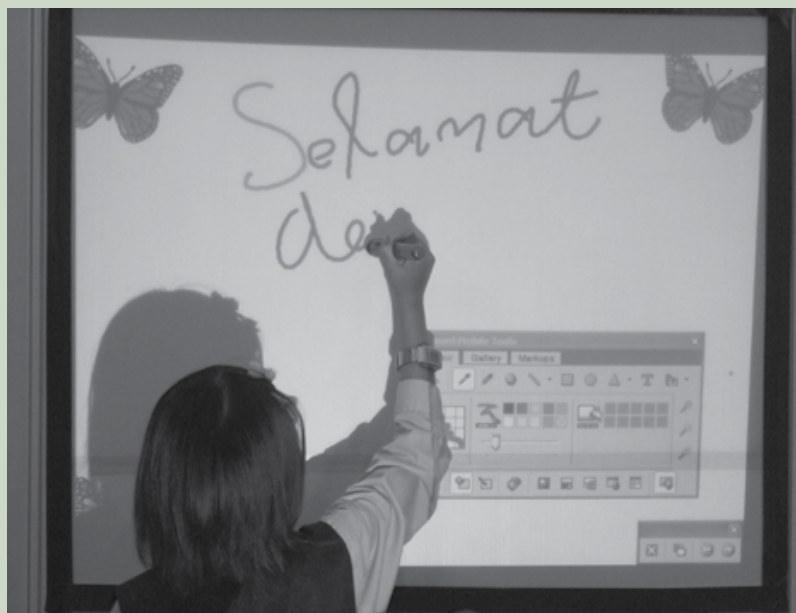 Selamat
de
Gallery Markups